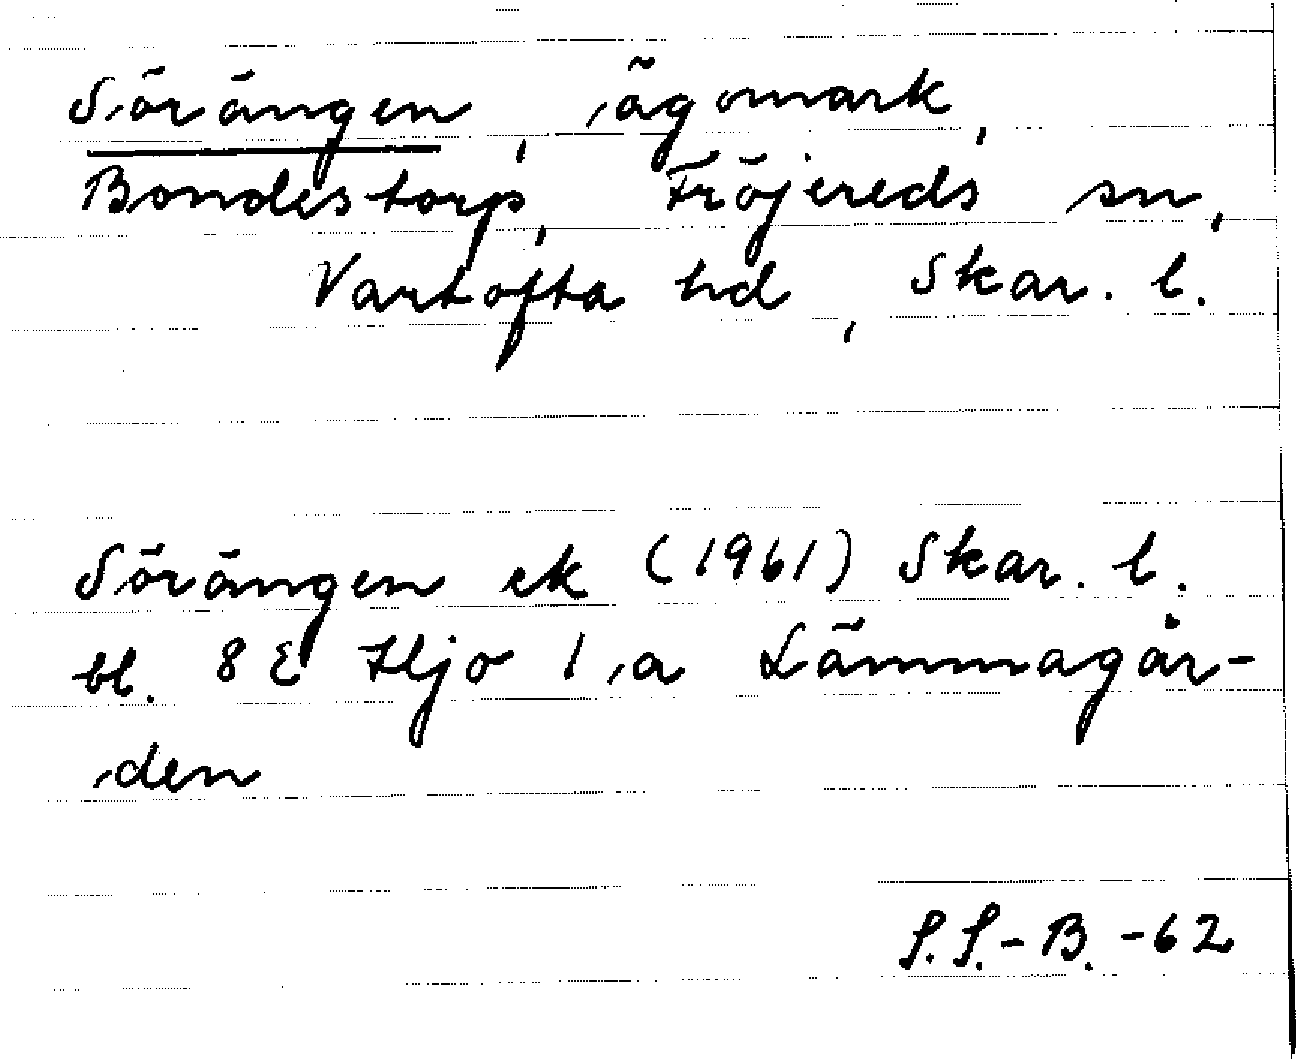 Sörängen, ägomark,
Bondestorp, Fröjereds sn,
Vartofta hd, Skar. l.
Sörängen ek (1961) Skar. l.
bl. 8 E Hjo 1 a Lämmagår-
den
S.S.-B. -62